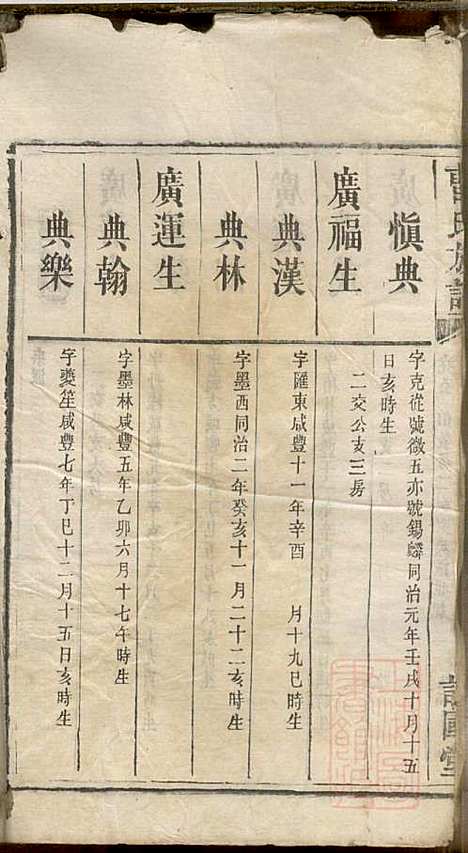 氏族譜
慎典
字克從號徵五亦號錫麟同治元年壬戌十月十五
日亥時生
廣福生
二交公支三房
典漢
字匯東咸豐十一年辛酉　月十九巳時生
典林
字墨西同治二年癸亥十一月二十二亥時生
廣運生
典翰
字墨林咸豐五年乙卯六月十七午時生
典樂
字夔笙咸豐七年丁巳十二月十五日亥時生